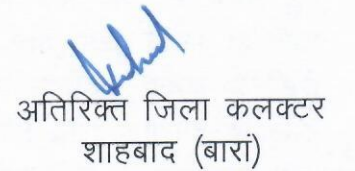 अतिरिक्त जिला कलक्टर
शाहबाद (बारां)